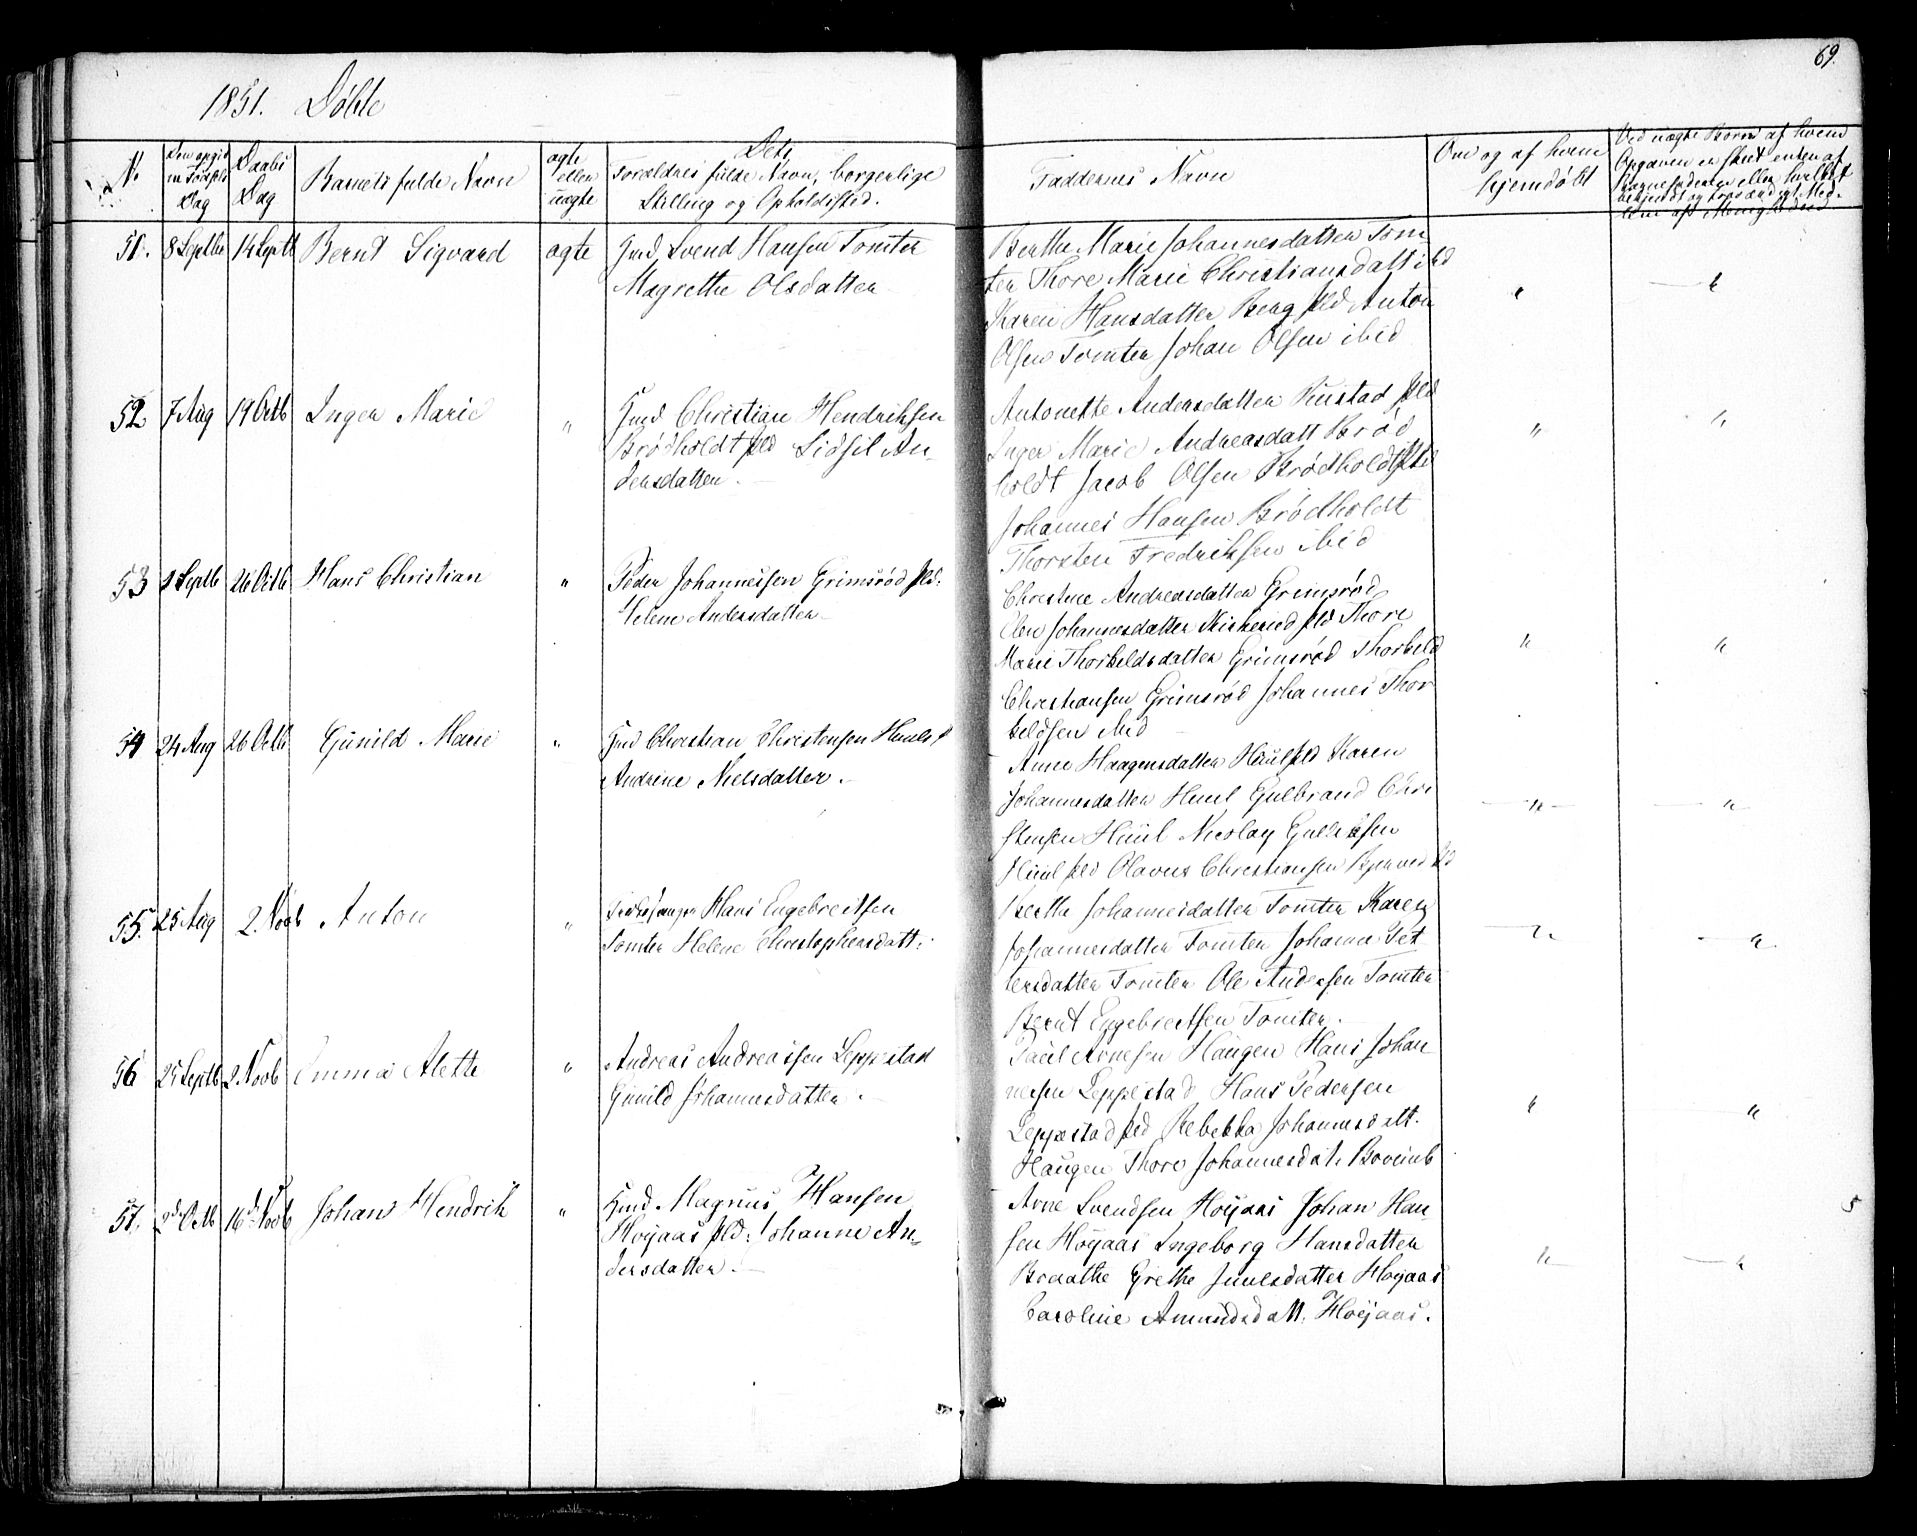 69.
1851. Döbte
N.
Den opgivne Fødsels Dag
Daabs Dag
Barnets fulde Navn
ægte eller uægte
Dets
Forældres fulde Navn, borgerlige
Stilling og Opholdssted.
Faddernes Navn
Om og af hvem
hjemdöbt
Ved uægte Børn af hvem
Opgaven er skeet enten af
Barnefaderen eller hvilket
51. 8 Septbr 14 Septb Bernt Sigvard ægte Gmd Svend Hansen Tomter
Magrethe Olsdatter
Berthe Marie Johannesdatter Tom-
ter Thore Marie Christiansdatt ibid
Karen Hansdatter Berg Pld Anton
Olsen Tomter Johan Olsen ibid
" "
52 7 Aug 19 Octb Inger Marie " Gmd Christian Hendriksen
Brödholdt Pld Sidsil An-
dersdatter.
Antonette Andersdatter Rustad Pld
Inger Marie Andreasdatt Bröd
holdt Jacob Olsen Brödholdt Pld
Johannes Hansen Brödholdt
Thorsten Fredriksen ibid
" "
53 Septb 26 Octb Hans Christian " Peder Johannessen Grimsröd Pld.
Helene Andersdatter
Christine Andreasdatter Grimsröd
Olea Johannesdatter Kirkerud Pld Thore
Marie Thorkeldsdatter Grimsröd Thorkeld
Christiansen Grimsröd Johannes Thor
keldsen ibid
" "
54 24 Aug 26 Octb Gunild Marie " Gmd Christian Christensen Huul
Andrine Nielsdatter.
Anne Haagensdatter Huul Pld Karen
Johannesdatter Huul Gulbrand Chri
stensen Huul Nicolay
Huul Pld Olavus Christiansen
" "
55. 25 Aug 2. Novb Anton " Hans Engebretsen
Tomter Helene Christophersdatt.
Berthe Johannesdatter Tomter Karen
Johannesdatter Tomter Johanne Pet
tersdatter Tomter Ole Andersen Tomter
Bernt Engebretsen Tomter.
" "
56 25 Septb 2. Novb Emma Alette " Andreas Andreassen Leppestad
Gunild Johannesdatter.
Paul Arnesen Haugen Hans Johan
nesen Leppestad Hans Pedersen
Leppestad Pld Rebekka Johannesdatt.
Haugen Thore Johannesdat.
" "
57. Octb 16d Novb Johan Hendrik " Gmd. Magnus Hansen
Höyaas Pld: Johanne An-
dersdatter.
Arne Svendsen Höyaas Johan Han-
sen Höyaas Ingeborg Hansdatter
Braathe Grethe Juulsdatter Höyaas
Caroline Amundsdatt. Höyaas.
" "